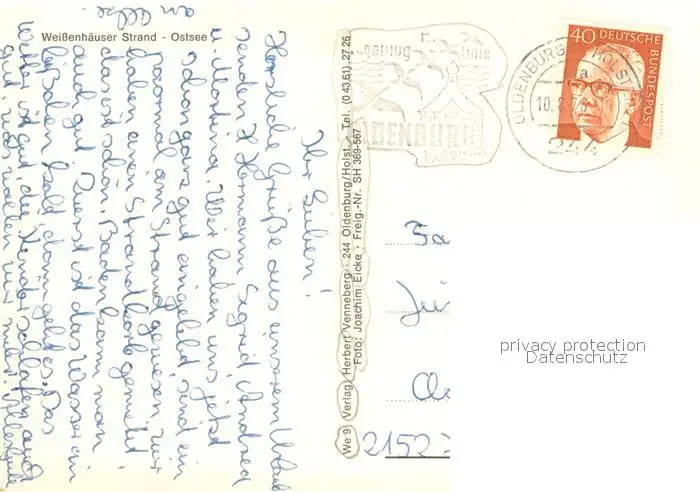 Weißenhäuser Strand - Ostsee
Ihr Lieben!
Herzliche Grüße aus unserem Urlaub
senden Hermann Sigrid, Andrea
u. Martina. Wir haben uns jetzt
schon ganz gut eingelebt sind ein
paarmal am Strand gewesen, wir
haben einen Strandkorb gemietet
das ist schön. Baden kann man
auch gut. Zuerst ist das Wasser ein
bißchen kalt, dann geht es. Das
Wetter ist gut, die Kinder schlafen auch
gut, was wollen wir mehr.
an alle.
We 9 Verlag: Herbert Venneberg · 244 Oldenburg/Holst. · Tel. (0 43 61) 27 26
Foto: Joachim Eicke · Freig.-Nr. SH 369-567
OLDENBURG
40 DEUTSCHE BUNDESPOST
OLDENBURG HOLST
a
10.
244
Fa
2152
privacy protection
Datenschutz